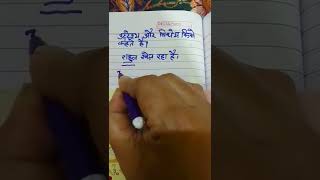 उद्देश्य और विधेय किसे
कहते हैं?
राहुल खेल रहा है।